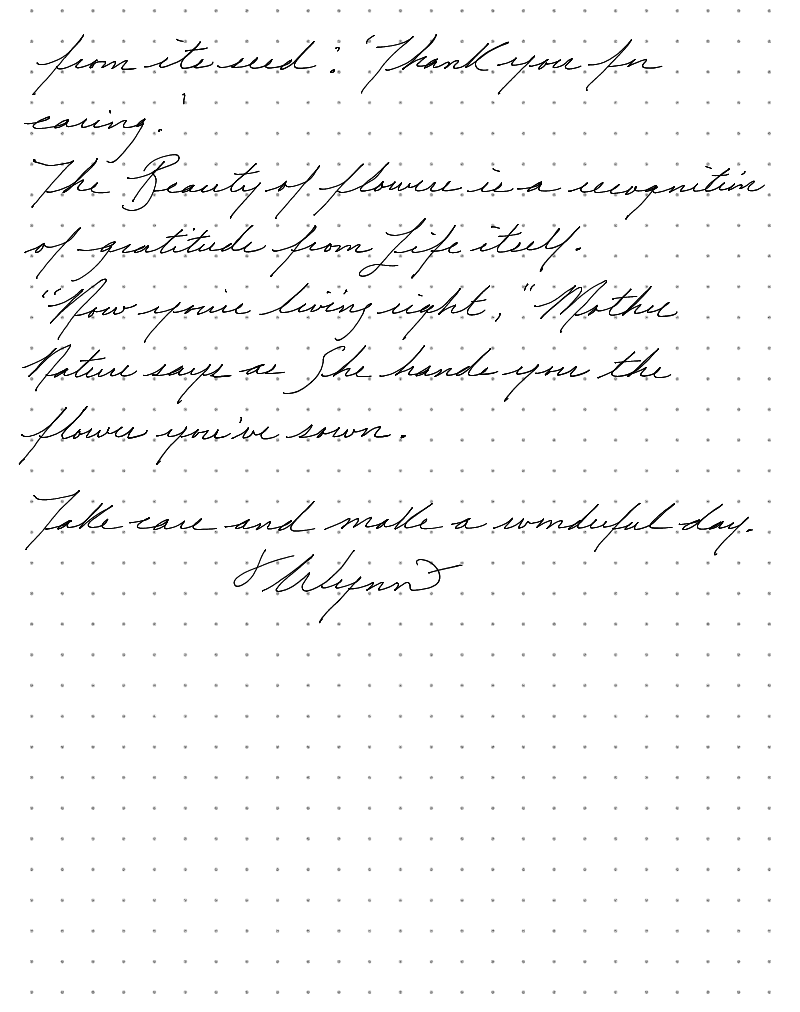 from its seed: 'Thank you for
caring.'
The Beauty of flowers is a recognition
of gratitude from Life itself.
"Now you're living right," Mother
Nature says as She hands you the
flower you've sown.
Take care and make a wonderful day.
Wynn